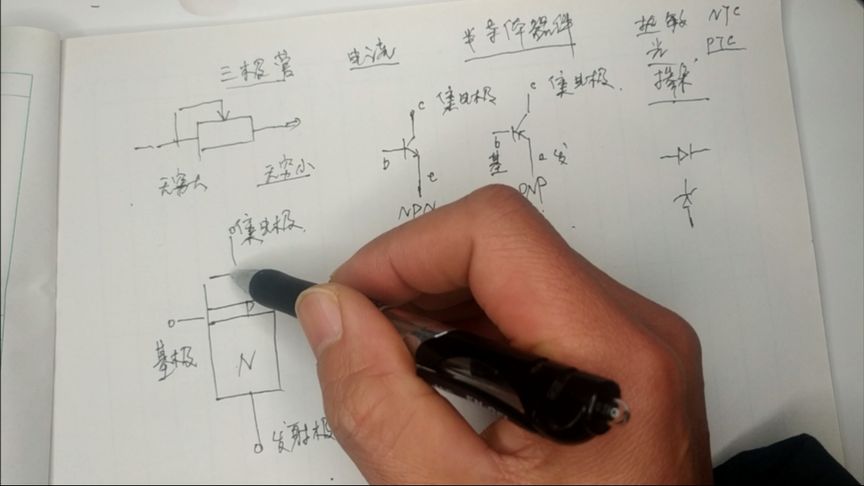 三极管 电流 半导体器件 热敏 NTC
光 PTC
c 集电极 c 集电极
b e NPN
b 基 e 发 PNP
无穷大 无穷小
集电极
P
基极 N
发射极